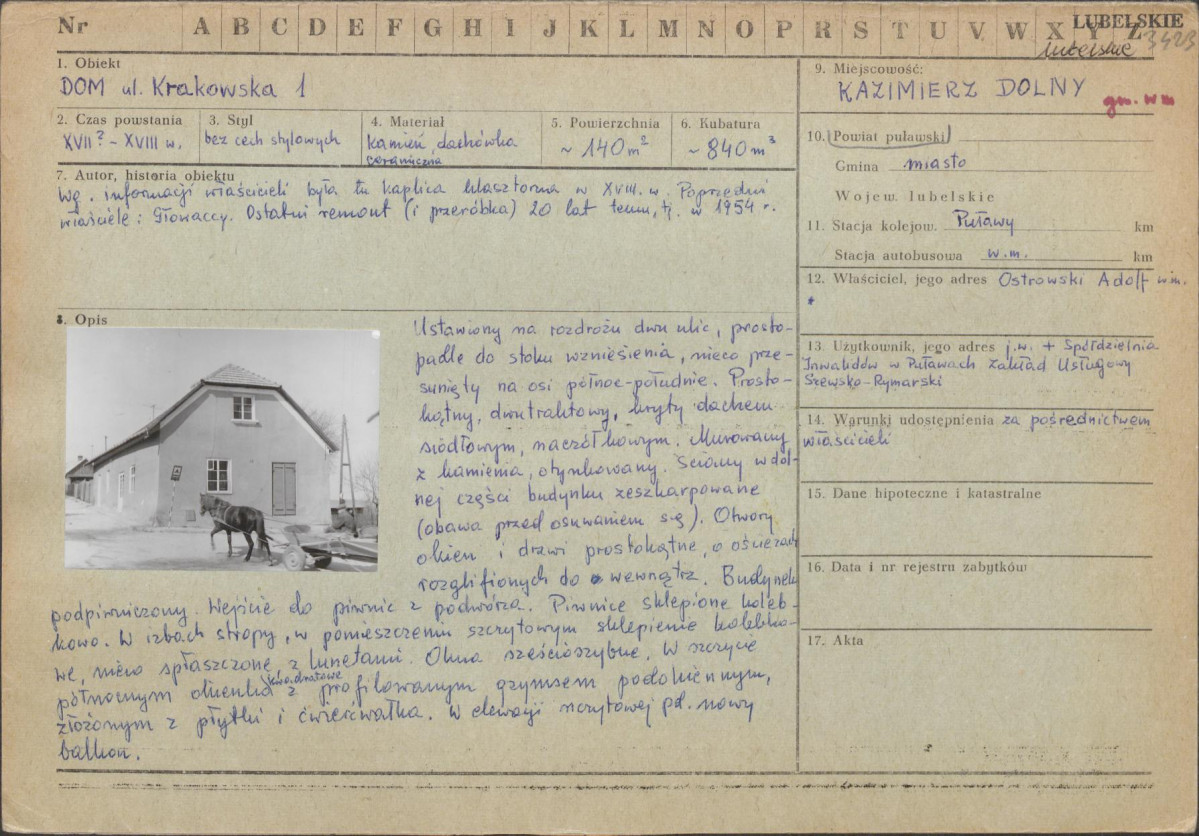 Nr A B C D E F G H I J K L M N O P R S T U V W X Y Z
LUBELSKIE
lubelskie 3423
1. Obiekt
DOM ul. Krakowska 1
2. Czas powstania
XVII? - XVIII w.
3. Styl
bez cech stylowych
4. Materiał
kamień, dachówka
ceramiczna
5. Powierzchnia
~ 140 m²
6. Kubatura
~ 840 m³
7. Autor, historia obiektu
Wg. informacji właścicieli była tu kaplica klasztorna w XVIII. w. Poprzedni
właściele: Głowaccy. Ostatni remont (i przeróbka) 20 lat temu, tj. w 1954 r.
8. Opis
Ustawiony na rozdrożu dwu ulic, prosto-
padle do stoku wzniesienia, nieco prze-
sunięty na osi północ-południe. Prosto-
kątny, dwutraktowy, kryty dachem
siodłowym, naczółkowym. Murowany
z kamienia, otynkowany. Ściany w dol-
nej części budynku zeszkarpowane
(obawa przed osuwaniem się). Otwory
okien i drzwi prostokątne, o ościeżach
rozglifionych do wewnątrz. Budynek
podpiwniczony. Wejście do piwnic z podwórza. Piwnice sklepione koleb-
kowo. W izbach stropy, w pomieszczeniu szczytowym sklepienie kolebko-
we, nieco spłaszczone, z lunetami. Okna sześcioszybne, w szczycie
północnym okienka kwadratowe z profilowanym gzymsem podokiennym,
złożonym z płytki i ćwierćwałka. W elewacji szczytowej pd. nowy
balkon.
9. Miejscowość:
KAZIMIERZ DOLNY
gm. w m
10. (Powiat puławski)
Gmina miasto
Wojew. lubelskie
11. Stacja kolejow. Puławy km
Stacja autobusowa w.m. km
12. Właściciel, jego adres Ostrowski Adolf w.m.
13. Użytkownik, jego adres j.w. + Spółdzielnia
Inwalidów w Puławach Zakład Usługowy
Szewsko-Rymarski
14. Warunki udostępnienia za pośrednictwem
właścicieli
15. Dane hipoteczne i katastralne
16. Data i nr rejestru zabytków
17. Akta